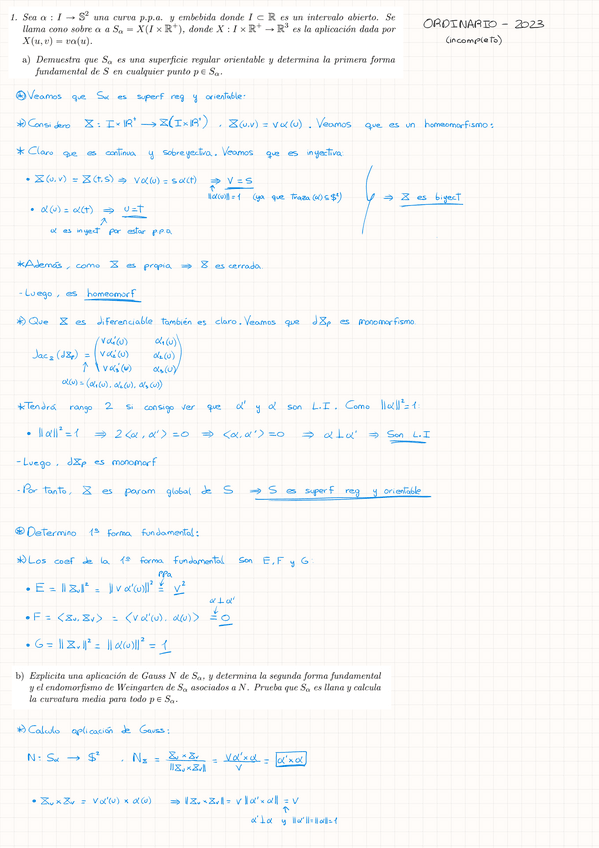 1. Sea α : I → 𝕊² una curva p.p.a. y embebida donde I ⊂ ℝ es un intervalo abierto. Se
llama cono sobre α a Sα = X(I × ℝ⁺), donde X : I × ℝ⁺ → ℝ³ es la aplicación dada por
X(u, v) = vα(u).
ORDINARIO - 2023
(incompleto)
a) Demuestra que Sα es una superficie regular orientable y determina la primera forma
fundamental de S en cualquier punto p ∈ Sα.
⊛ Veamos que Sα es superf reg y orientable:
*) Considero X : I × ℝ⁺ → X(I × ℝ⁺) . X(u,v) = vα(u) . Veamos que es un homeomorfismo:
* Claro que es continua y sobreyectiva. Veamos que es inyectiva
• X(u,v) = X(t,s) ⇒ vα(u) = sα(t) ⇒ v = s
‖α(u)‖=1 (ya que Traza(α) ⊆ 𝕊²)
⇒ X es biyect
• α(u) = α(t) ⇒ u = t
α es inyect por estar p.p.a
* Además, como X es propia ⇒ X es cerrada
- Luego, es homeomorf
*) Que X es diferenciable también es claro. Veamos que dXp es monomorfismo
Jac₂ (dXp) = ( vα₁'(u) α₁(u)
vα₂'(u) α₂(u)
vα₃'(u) α₃(u) )
α(u) = (α₁(u), α₂(u), α₃(u))
* Tendrá rango 2 si consigo ver que α' y α son L.I. Como ‖α‖² = 1
• ‖α‖² = 1 ⇒ 2<α, α'> = 0 ⇒ <α, α'> = 0 ⇒ α ⊥ α' ⇒ Son L.I
- Luego, dXp es monomorf
- Por tanto, X es param global de S ⇒ S es superf reg y orientable
⊛ Determino 1ª forma fundamental:
*) Los coef de la 1ª forma fundamental son E, F y G:
ppa
• E = ‖Xu‖² = ‖v α'(u)‖² = v²
α ⊥ α'
• F = <Xu, Xv> = <vα'(u), α(u)> = 0
• G = ‖Xv‖² = ‖α(u)‖² = 1
b) Explicita una aplicación de Gauss N de Sα, y determina la segunda forma fundamental
y el endomorfismo de Weingarten de Sα asociados a N. Prueba que Sα es llana y calcula
la curvatura media para todo p ∈ Sα.
*) Calculo aplicación de Gauss:
N : Sα → 𝕊² . N_X = Xu × Xv / ‖Xu × Xv‖ = vα' × α / v = α' × α
• Xu × Xv = vα'(u) × α(u) ⇒ ‖Xu × Xv‖ = v‖α' × α‖ = v
α' ⊥ α y ‖α'‖ = ‖α‖ = 1